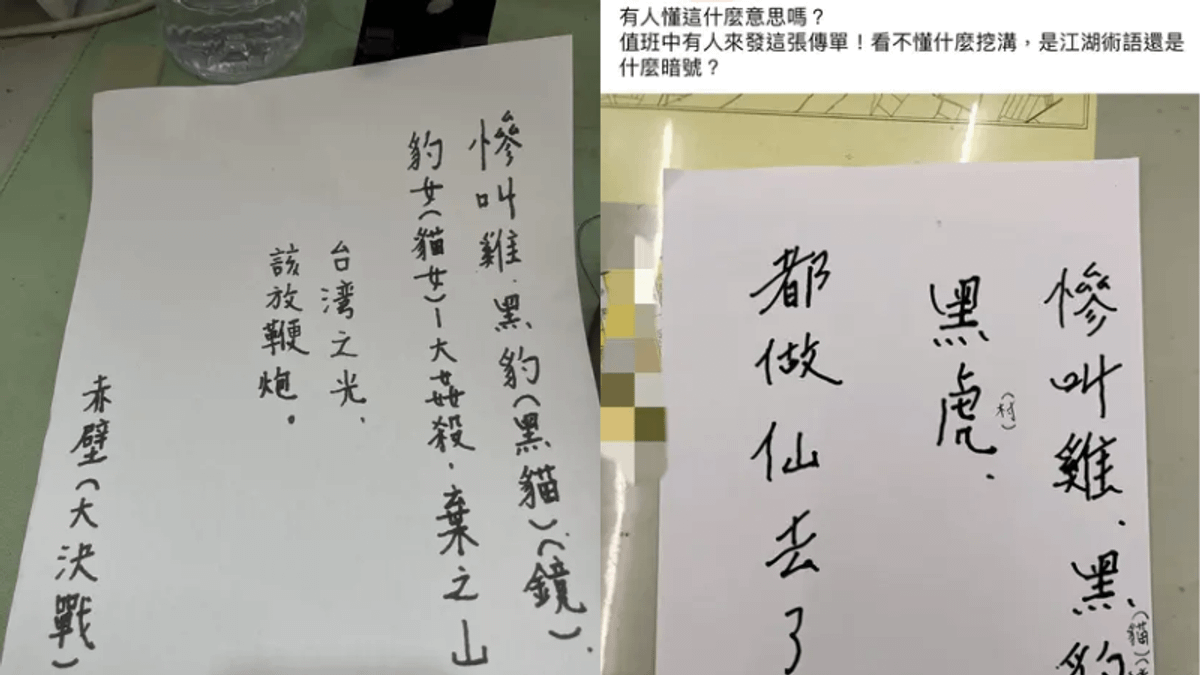 慘叫雞.黑豹(黑貓)(鏡).
豹女(貓女)一大姦殺.棄之山
台灣之光、
該放鞭炮。
赤壁(大決戰)
有人懂這什麼意思嗎？
值班中有人來發這張傳單！看不懂什麼挖溝，是江湖術語還是
什麼暗號？
慘叫雞.黑豹(貓)
黑虎(村).
都做仙去了